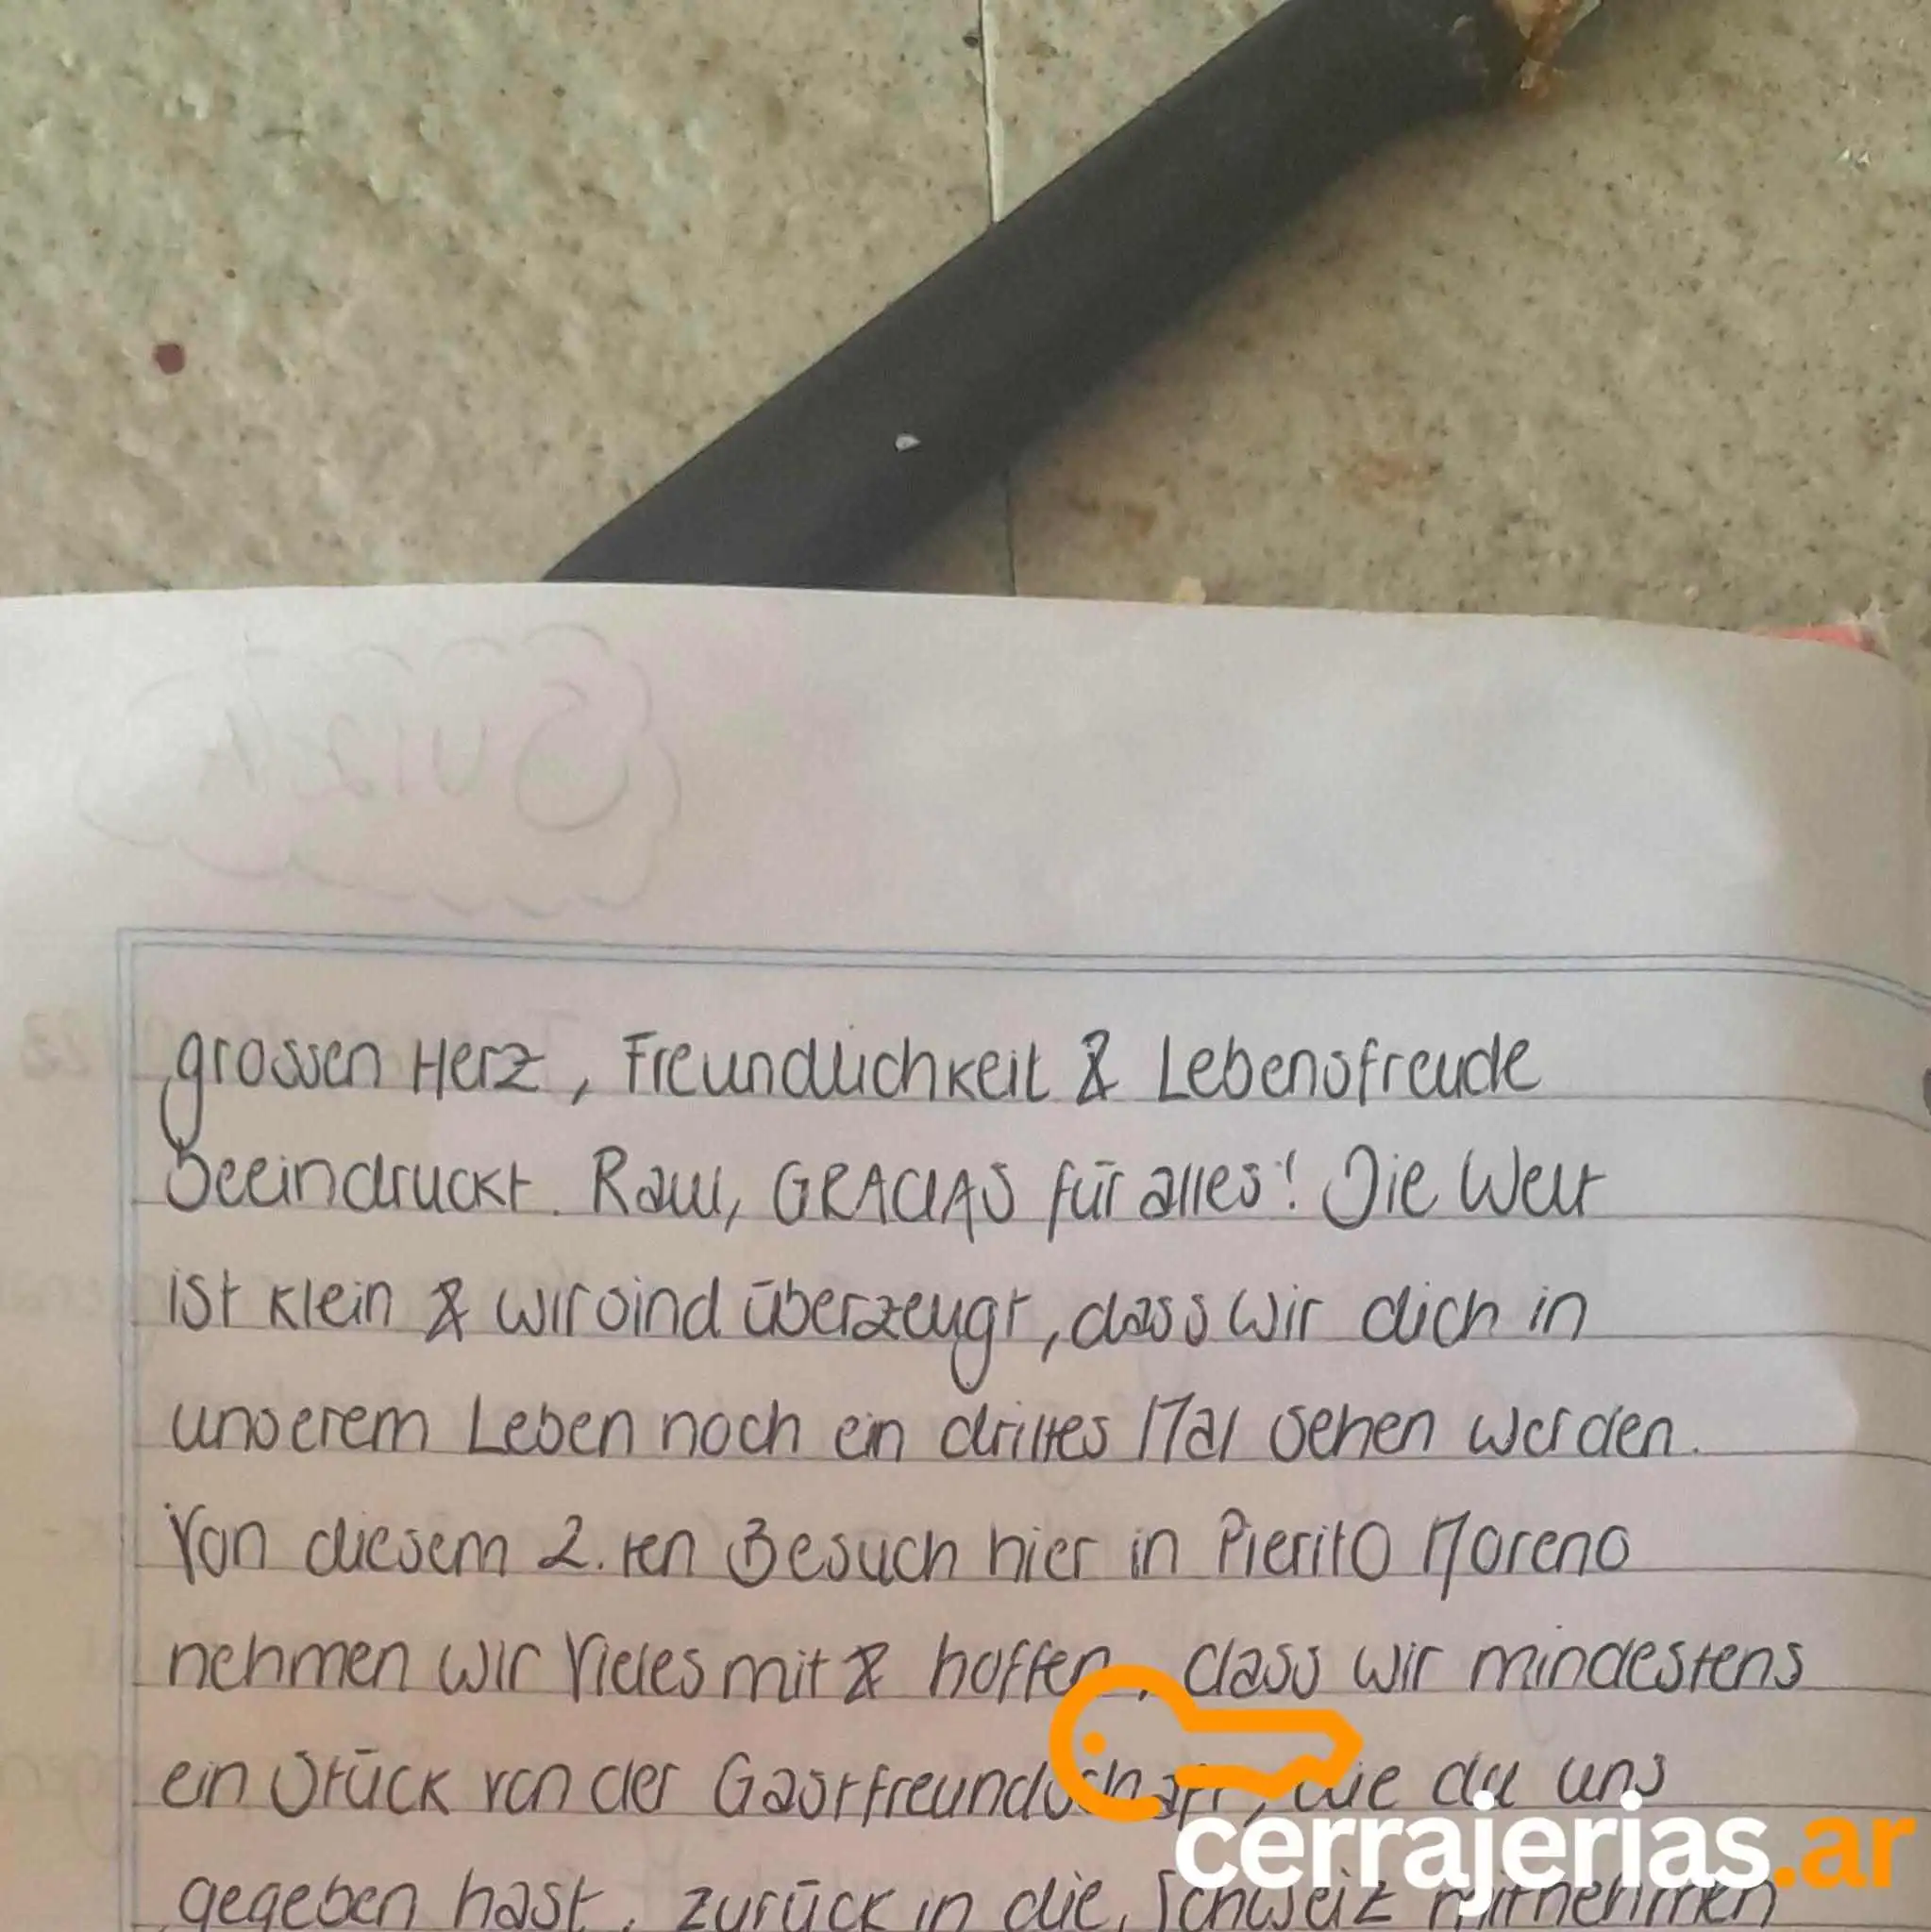 Suiza
grossen Herz, Freundlichkeit & Lebensfreude
beeindruckt. Raul, GRACIAS für alles! Die Welt
ist klein & wir sind überzeugt, dass wir dich in
unserem Leben noch ein drittes Mal sehen werden.
Von diesem 2.ten Besuch hier in Pierito Moreno
nehmen wir Vieles mit & hoffen, dass wir mindestens
ein Stück von der Gastfreundschaft, die du uns
cerrajerias.ar
gegeben hast, zurück in die Schweiz mitnehmen